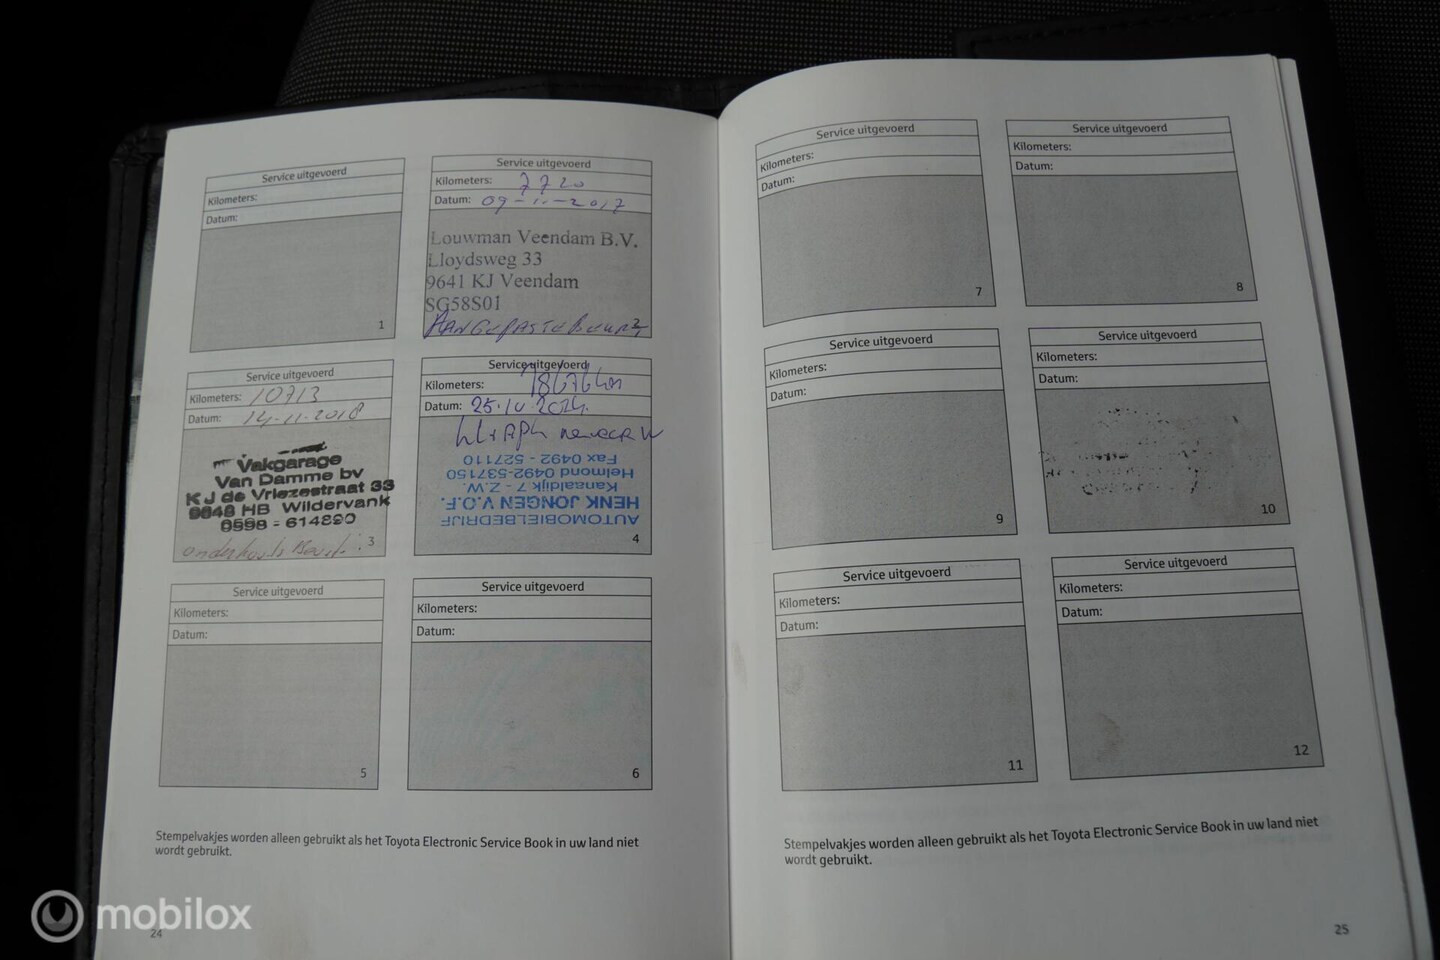 Service uitgevoerd
Kilometers:
Datum:
1
Service uitgevoerd
Kilometers: 7720
Datum: 09-11-2017
Louwman Veendam B.V.
Lloydsweg 33
9641 KJ Veendam
SG58S01
AANGEPASTE BEURT
2
Service uitgevoerd
Kilometers: 10713
Datum: 14-11-2018
Vakgarage
Van Damme bv
K J de Vriezestraat 33
9648 HB Wildervank
0598 - 614890
onderhouds Beurt
3
Service uitgevoerd
Kilometers: 18676 km
Datum: 25.10.2024.
AUTOMOBIELBEDRIJF
HENK JONGEN V.O.F.
Kanaaldijk 7 - Z.W.
Helmond 0492-537150
Fax 0492 - 527110
4
Service uitgevoerd
Kilometers:
Datum:
5
Service uitgevoerd
Kilometers:
Datum:
6
Stempelvakjes worden alleen gebruikt als het Toyota Electronic Service Book in uw land niet
wordt gebruikt.
24
Service uitgevoerd
Kilometers:
Datum:
7
Service uitgevoerd
Kilometers:
Datum:
8
Service uitgevoerd
Kilometers:
Datum:
9
Service uitgevoerd
Kilometers:
Datum:
10
Service uitgevoerd
Kilometers:
Datum:
11
Service uitgevoerd
Kilometers:
Datum:
12
Stempelvakjes worden alleen gebruikt als het Toyota Electronic Service Book in uw land niet
wordt gebruikt.
25
mobilox